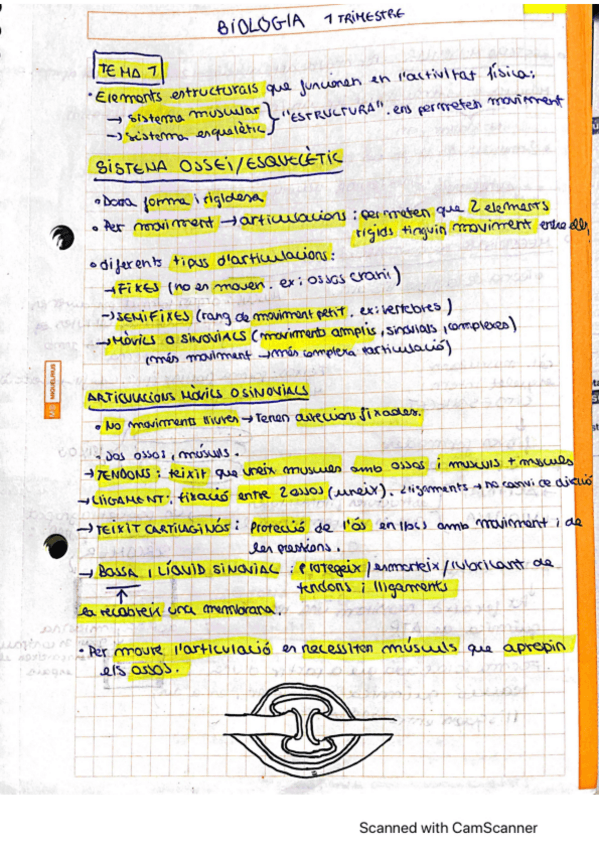 BiOLOGIA 1 TRIMESTRE
TEMA 1
• Elements estructurals que funcionen en l'activitat física:
→ sistema muscular
→ sistema esquelètic
"ESTRUCTURA". ens permeten moviment
SISTEMA OSSEI/ESQUELÈTIC
• Dona forma i rigidesa
• Per moviment → articulacions: permeten que 2 elements
rígids tinguin moviment entre ells
• diferents tipus d'articulacions:
→ FIXES (no en mouen. ex: ossos crani)
→ SEMIFIXES (rang de moviment petit. ex: vertebres)
→ MÒVILS O SINOVIALS (moviments amplis, sinovials, complexes)
(més moviment → més complexa l'articulació)
ARTICULACIONS MÒVILS O SINOVIALS
• No moviments lliures → Tenen direccions fixades.
• Dos ossos, músculs.
→ TENDONS: teixit que uneix muscles amb ossos i musculs + muscles
→ LLIGAMENT: fixació entre 2 ossos (uneix). lligaments → no canvi de direcció
→ TEIXIT CARTILAGINÓS: Protecció de l'ós en lloc amb moviment i de
les pressions.
→ BOSSA i LÍQUID SINOVIAL: Protegeix / esmorteix / lubricant de
tendons i lligaments
la recobreix una membrana.
• Per moure l'articulació es necessiten músculs que apropin
els ossos.
MIQUELRIUS
Scanned with CamScanner